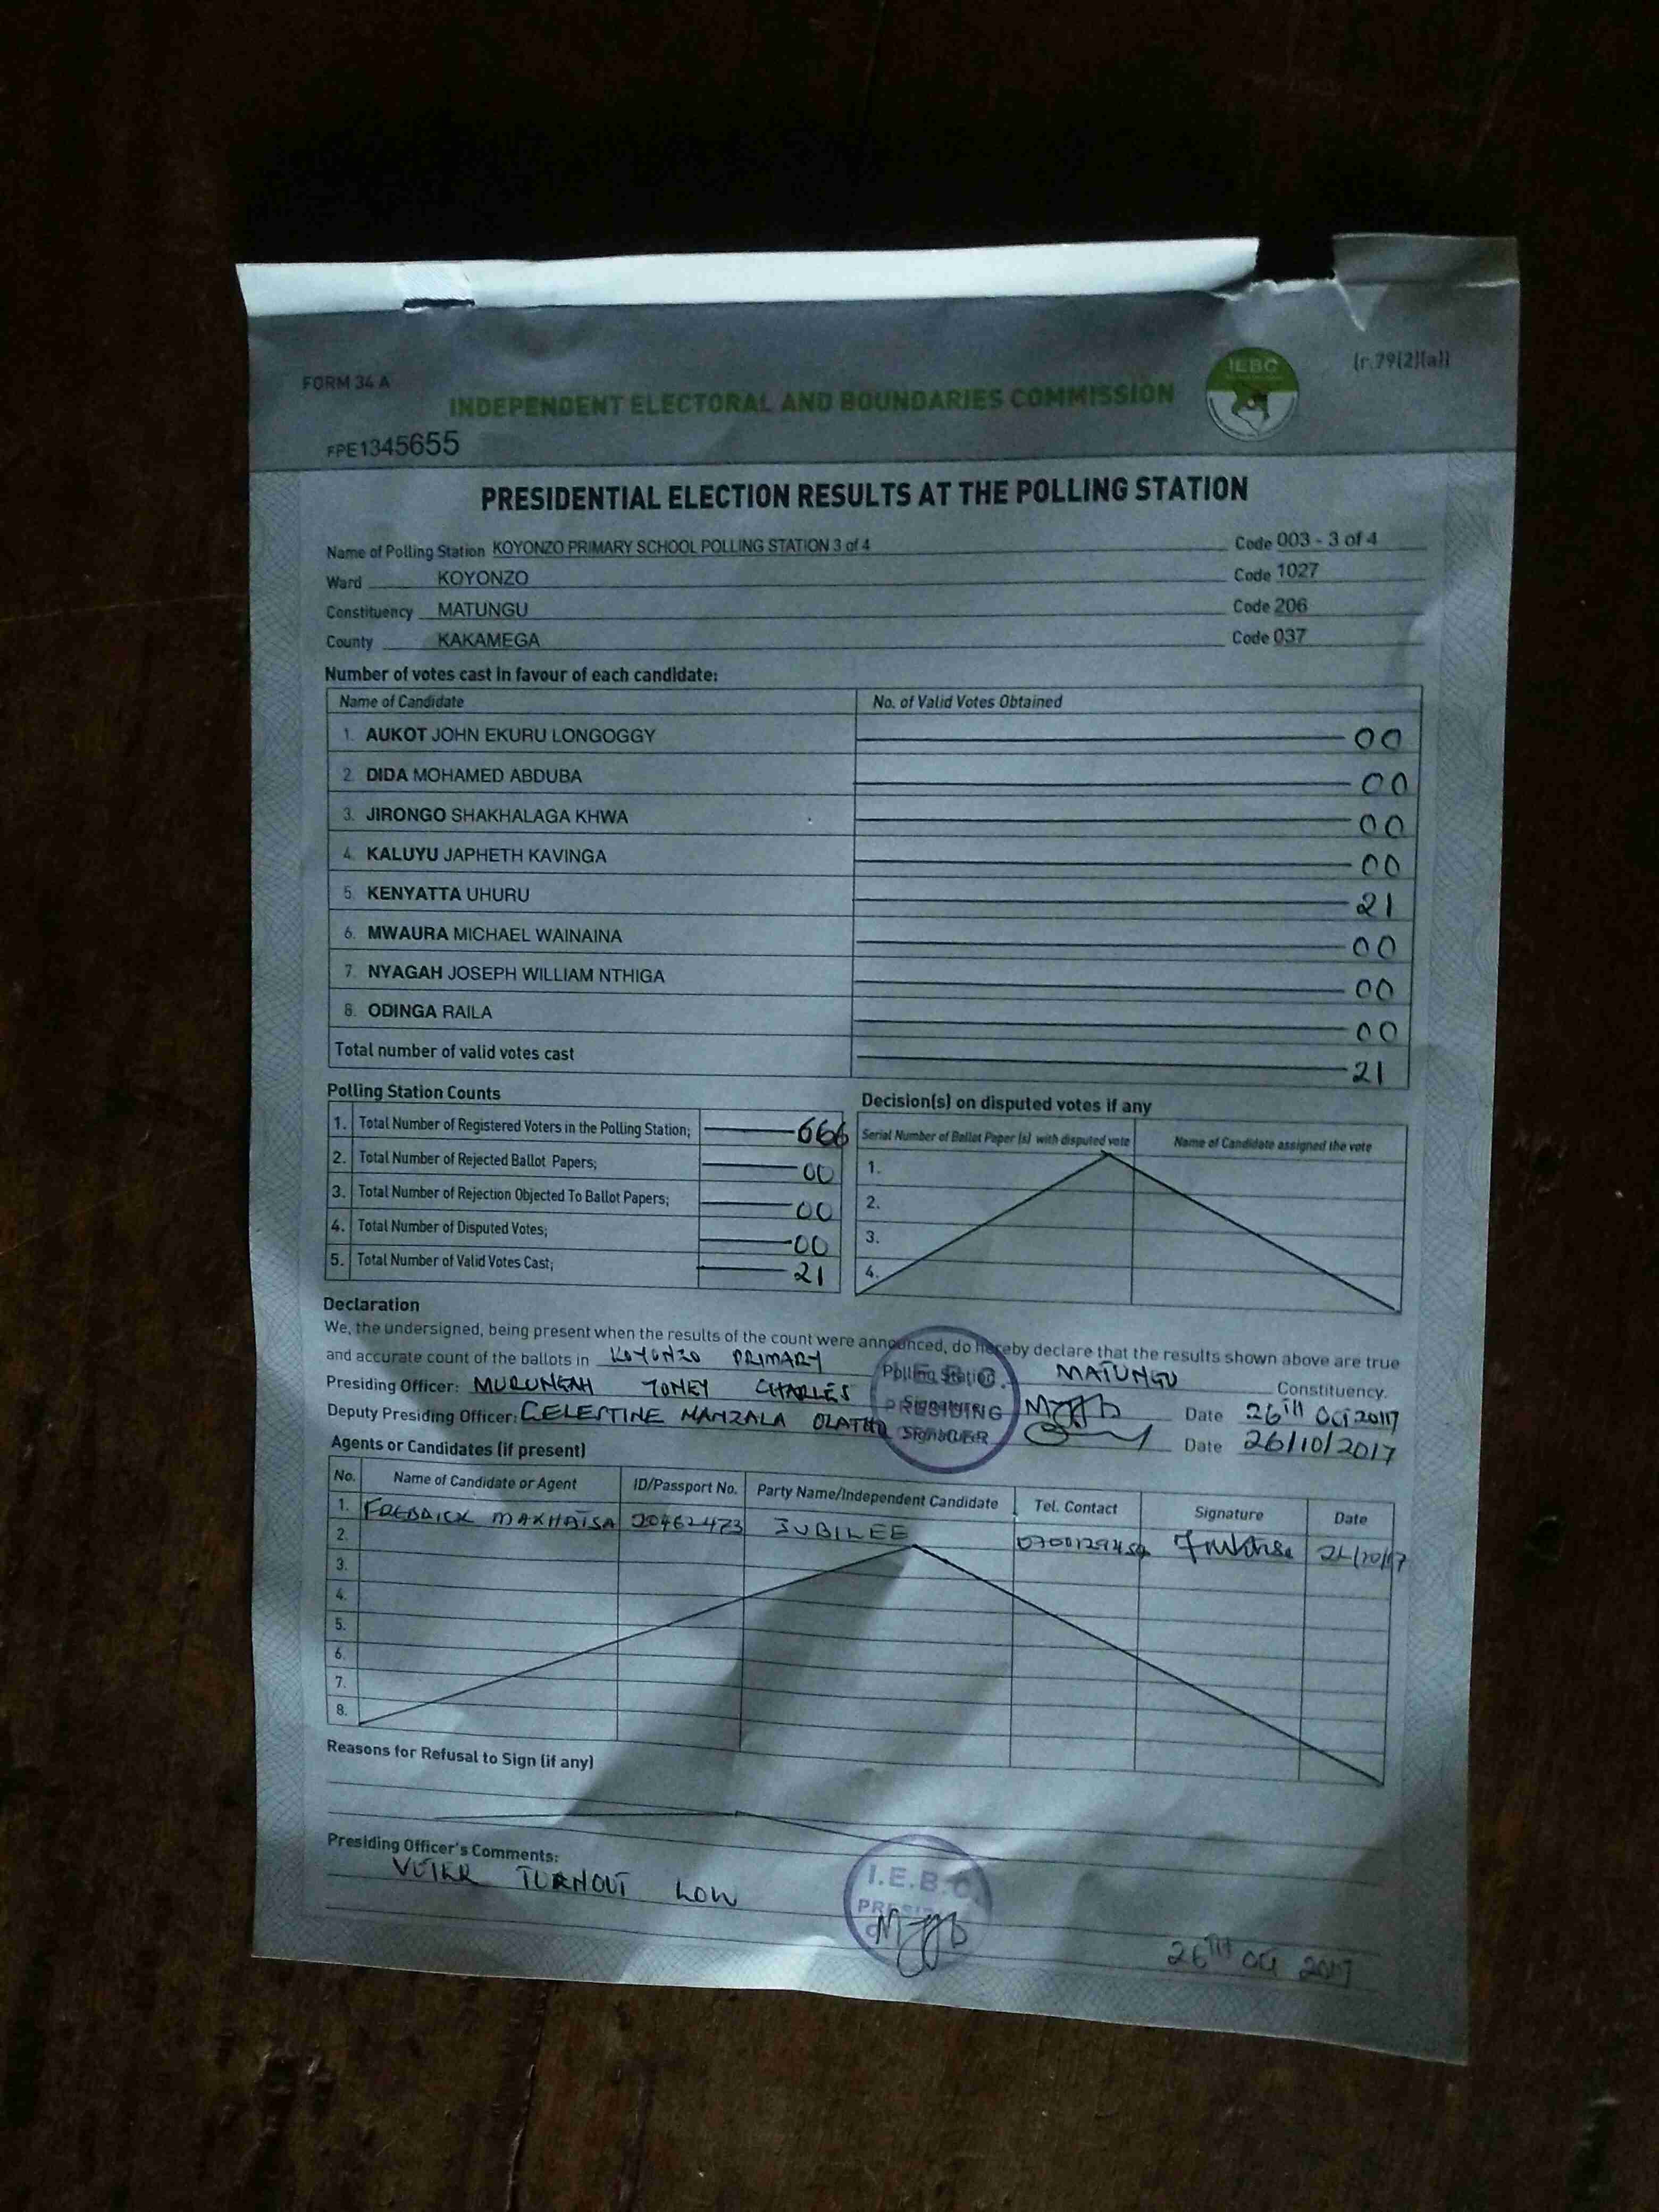 FORM 34 A
(r.79(2)(a))
IEBC
INDEPENDENT ELECTORAL AND BOUNDARIES COMMISSION
FPE1345655
PRESIDENTIAL ELECTION RESULTS AT THE POLLING STATION
Name of Polling Station KOYONZO PRIMARY SCHOOL POLLING STATION 3 of 4 Code 003 - 3 of 4
Ward KOYONZO Code 1027
Constituency MATUNGU Code 206
County KAKAMEGA Code 037
Number of votes cast in favour of each candidate:
Name of Candidate No. of Valid Votes Obtained
1. AUKOT JOHN EKURU LONGOGGY 00
2. DIDA MOHAMED ABDUBA 00
3. JIRONGO SHAKHALAGA KHWA 00
4. KALUYU JAPHETH KAVINGA 00
5. KENYATTA UHURU 21
6. MWAURA MICHAEL WAINAINA 00
7. NYAGAH JOSEPH WILLIAM NTHIGA 00
8. ODINGA RAILA 00
Total number of valid votes cast 21
Polling Station Counts
1. Total Number of Registered Voters in the Polling Station; 666
2. Total Number of Rejected Ballot Papers; 00
3. Total Number of Rejection Objected To Ballot Papers; 00
4. Total Number of Disputed Votes; 00
5. Total Number of Valid Votes Cast; 21
Decision(s) on disputed votes if any
Serial Number of Ballot Paper (s) with disputed vote Name of Candidate assigned the vote
1.
2.
3.
4.
Declaration
We, the undersigned, being present when the results of the count were announced, do hereby declare that the results shown above are true
and accurate count of the ballots in KOYONZO PRIMARY Polling Station, MATUNGU Constituency.
Presiding Officer: MURUNGAH TONEY CHARLES Signature Date 26TH OCT 2017
Deputy Presiding Officer: CELESTINE NANZALA Signature Date 26/10/2017
PRESIDING
Agents or Candidates (if present)
No. Name of Candidate or Agent ID/Passport No. Party Name/Independent Candidate Tel. Contact Signature Date
1. FREDRICK MAKHAISA 20462473 JUBILEE
2.
3.
4.
5.
6.
7.
8.
Reasons for Refusal to Sign (if any)
Presiding Officer's Comments:
VOTER TURNOUT LOW
I.E.B.C.
26TH OCT 2017